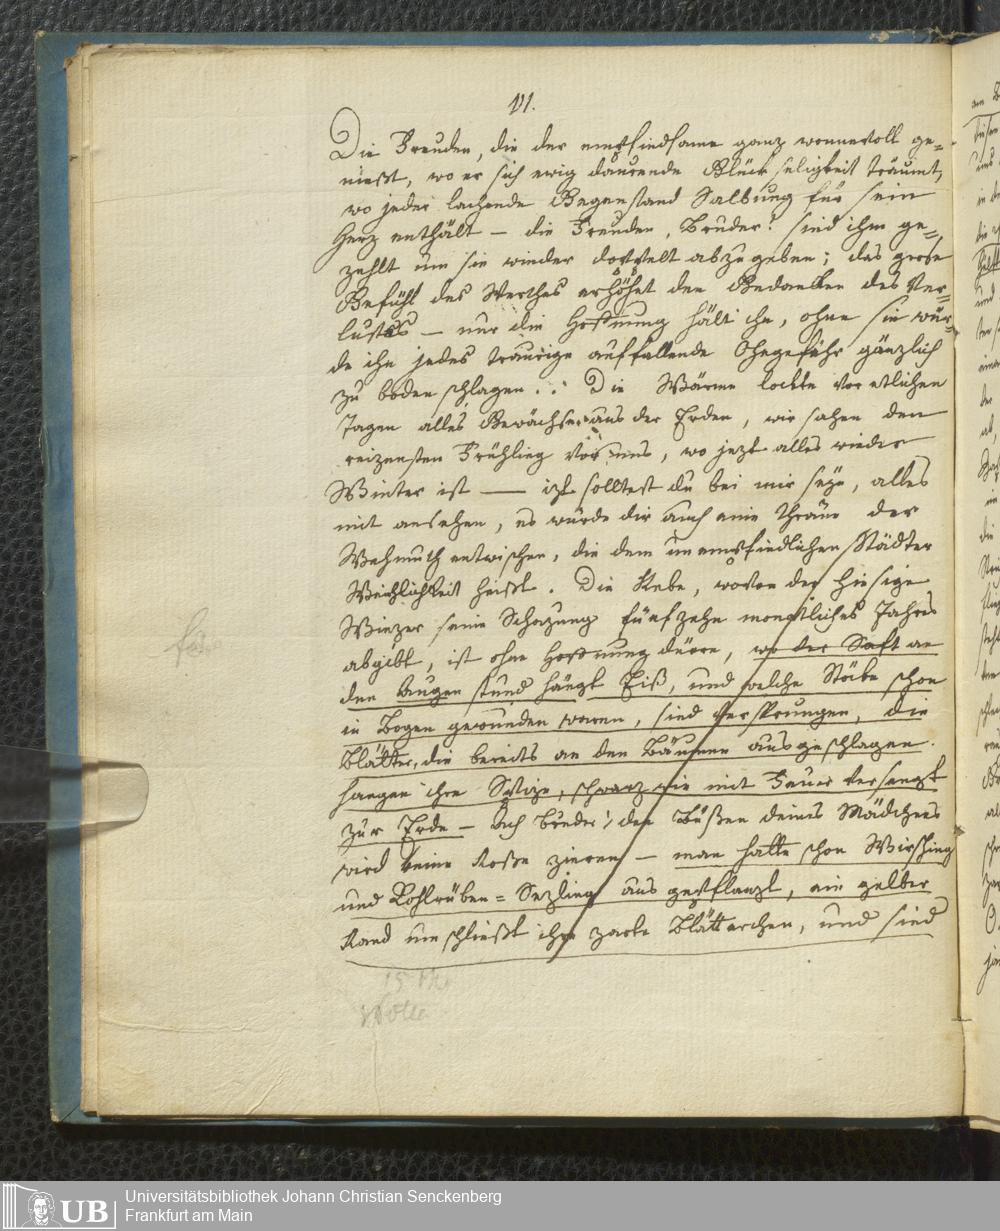 VI.
Die Freuden, die der empfindsame ganz wonnevoll ge=
nießt, wo er sich ewig daurende Glück seligkeit träumt,
wo jeder lachende Gegenstand Salbung für sein
Herz enthält — die Freuden, Bruder! sind ihm ge=
zehlt um sie wieder doppelt abzugeben; das grose
Gefühl des Werthes erhöhet den Gedanken des Ver=
lustes — nur die Hoffnung hält ihn, ohne sie wür=
de ihn jedes traurige auffallende Ohngefähr gänzlich
zu boden schlagen.. Die Wärme lockte vor etlichen
Tagen alles Gewächse aus der Erden, wir sahen den
reizensten Frühling vor uns, wo jezt alles wieder
Winter ist — izt solltest du bei mir seyn, alles
mit ansehen, es würde dir auch eine Thräne der
Wehmuth entwischen, die dem unempfindlichen Städter
Weichlichkeit heißt. Die Rebe, wovon der hiesige
Winzer seine Schazung fünfzehn monatliches Jahres
abgibt, ist ohne Hoffnung dürre, wo der Saft an
den Augen stund hängt Eiß, und welche Stöcke schon
in Bogen gewunden waren, sind versprungen, die
Blätter, die bereits an den Bäumen ausgeschlagen.
hangen ihre Spize, schwarz wie mit Feuer versengt
zur Erde — Ach Bruder! den Busen deines Mädchens
wird keine Rose zieren — man hatte schon Wirsching
und Kohlrüben = Sezling aus gepflanzt, ein gelber
Rand umschließt ihre zarte Blätterchen, und sind
Universitätsbibliothek Johann Christian Senckenberg
UB
Frankfurt am Main